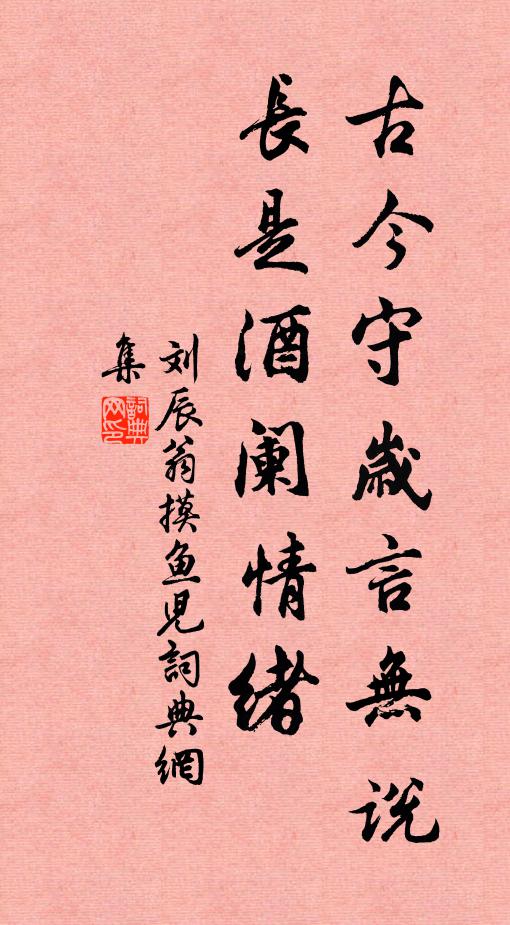 古今守歲言無説
長是酒阑情緒
刘辰翁摸鱼児詞典網
集
詞典网印